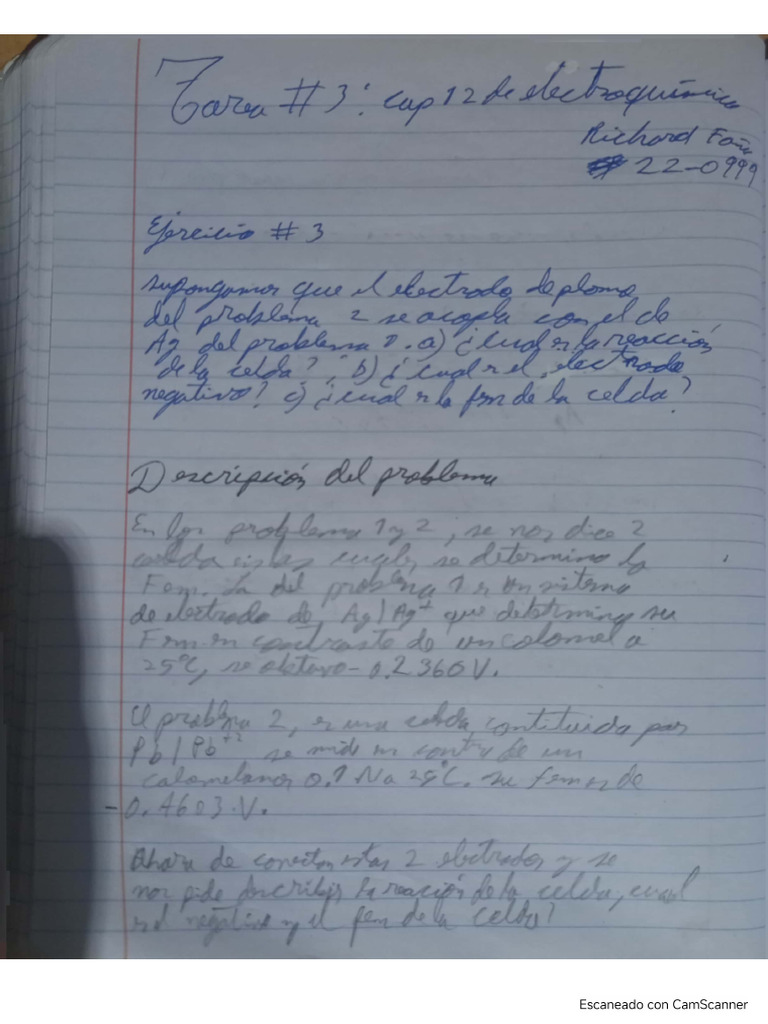 Tarea # 3: cap 12 de electroquímica
Richard
22-0999
Ejercicio # 3
supongamos que el electrodo de plomo
del problema 2 se acopla con el de
Ag del problema 1. a) ¿cual es la reacción
de la celda?; b) ¿cual es el electrodo
negativo? c) ¿cual es la fem de la celda?
Descripción del problema
En los problema 1 y 2, se nos dice 2
celda se determino la
Fem. La del problema 1 es un sistema
de electrodo de Ag|Ag+ que determina su
Fem en contraste de un calomel a
25°C, se obtuvo -0.2360V.
El problema 2, es una celda contituida por
Pb|Pb+2 se mide en contra de un
calomelanos 0.1 N a 25°C. su fem es de
-0.4603 V.
Ahora se conectan estas 2 electrodos y se
nos pide describir la reacción de la celda, cual
es el negativo y el fem de la celda?
Escaneado con CamScanner